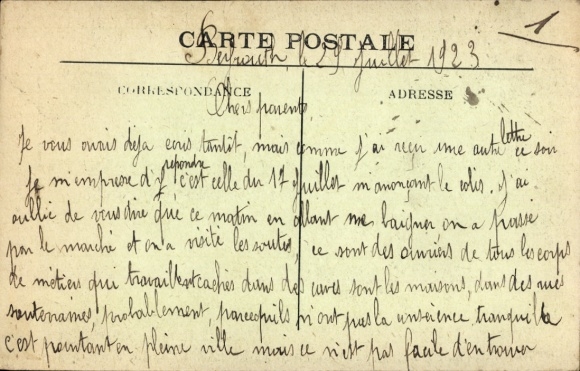 1
CARTE POSTALE
Beyrouth, le 29 Juillet 1923
CORRESPONDANCE
ADRESSE
Chers parents
Je vous avais déja ecris tantôt, mais comme j'ai reçu une autre lettre ce soir
Je m'empresse d'y repondre c'est celle du 17 Juillet m'anonçant le colis. J'ai
oublié de vous dire que ce matin en allant me baigner on a passé
par le marché et on a visité les soutes, ce sont des ouvriers de tous les corps
de métiers qui travaillent cachés dans des caves sont les maisons, dans des rues
souteraines, probablement, parcequ'ils n'ont pas la conscience tranquille
c'est pourtant en pleine ville mais ce n'est pas facile d'en trouver